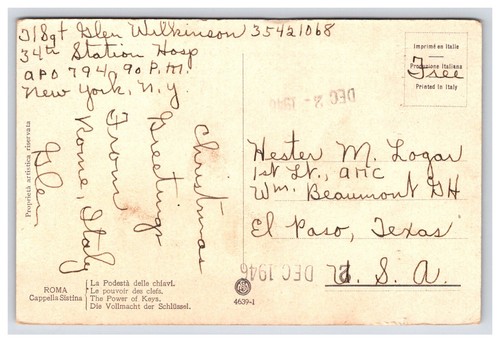 T/Sgt Glen Wilkinson 35421068
34th Station Hosp
APO 794, % P.M.
New York, N.Y.
Christmas
Greetings
From
Rome, Italy
Glen
Proprietà artistica riservata
Imprimé en Italie
Produzione Italiana
Printed in Italy
Free
DEC 2 - 1946
Hester M. Logar
1st Lt., AMC
Wm. Beaumont GH
El Paso, Texas
U. S. A.
DEC 1946
ROMA
Cappella Sistina
La Podestà delle chiavi.
Le pouvoir des clefs.
The Power of Keys.
Die Vollmacht der Schlüssel.
4639-1